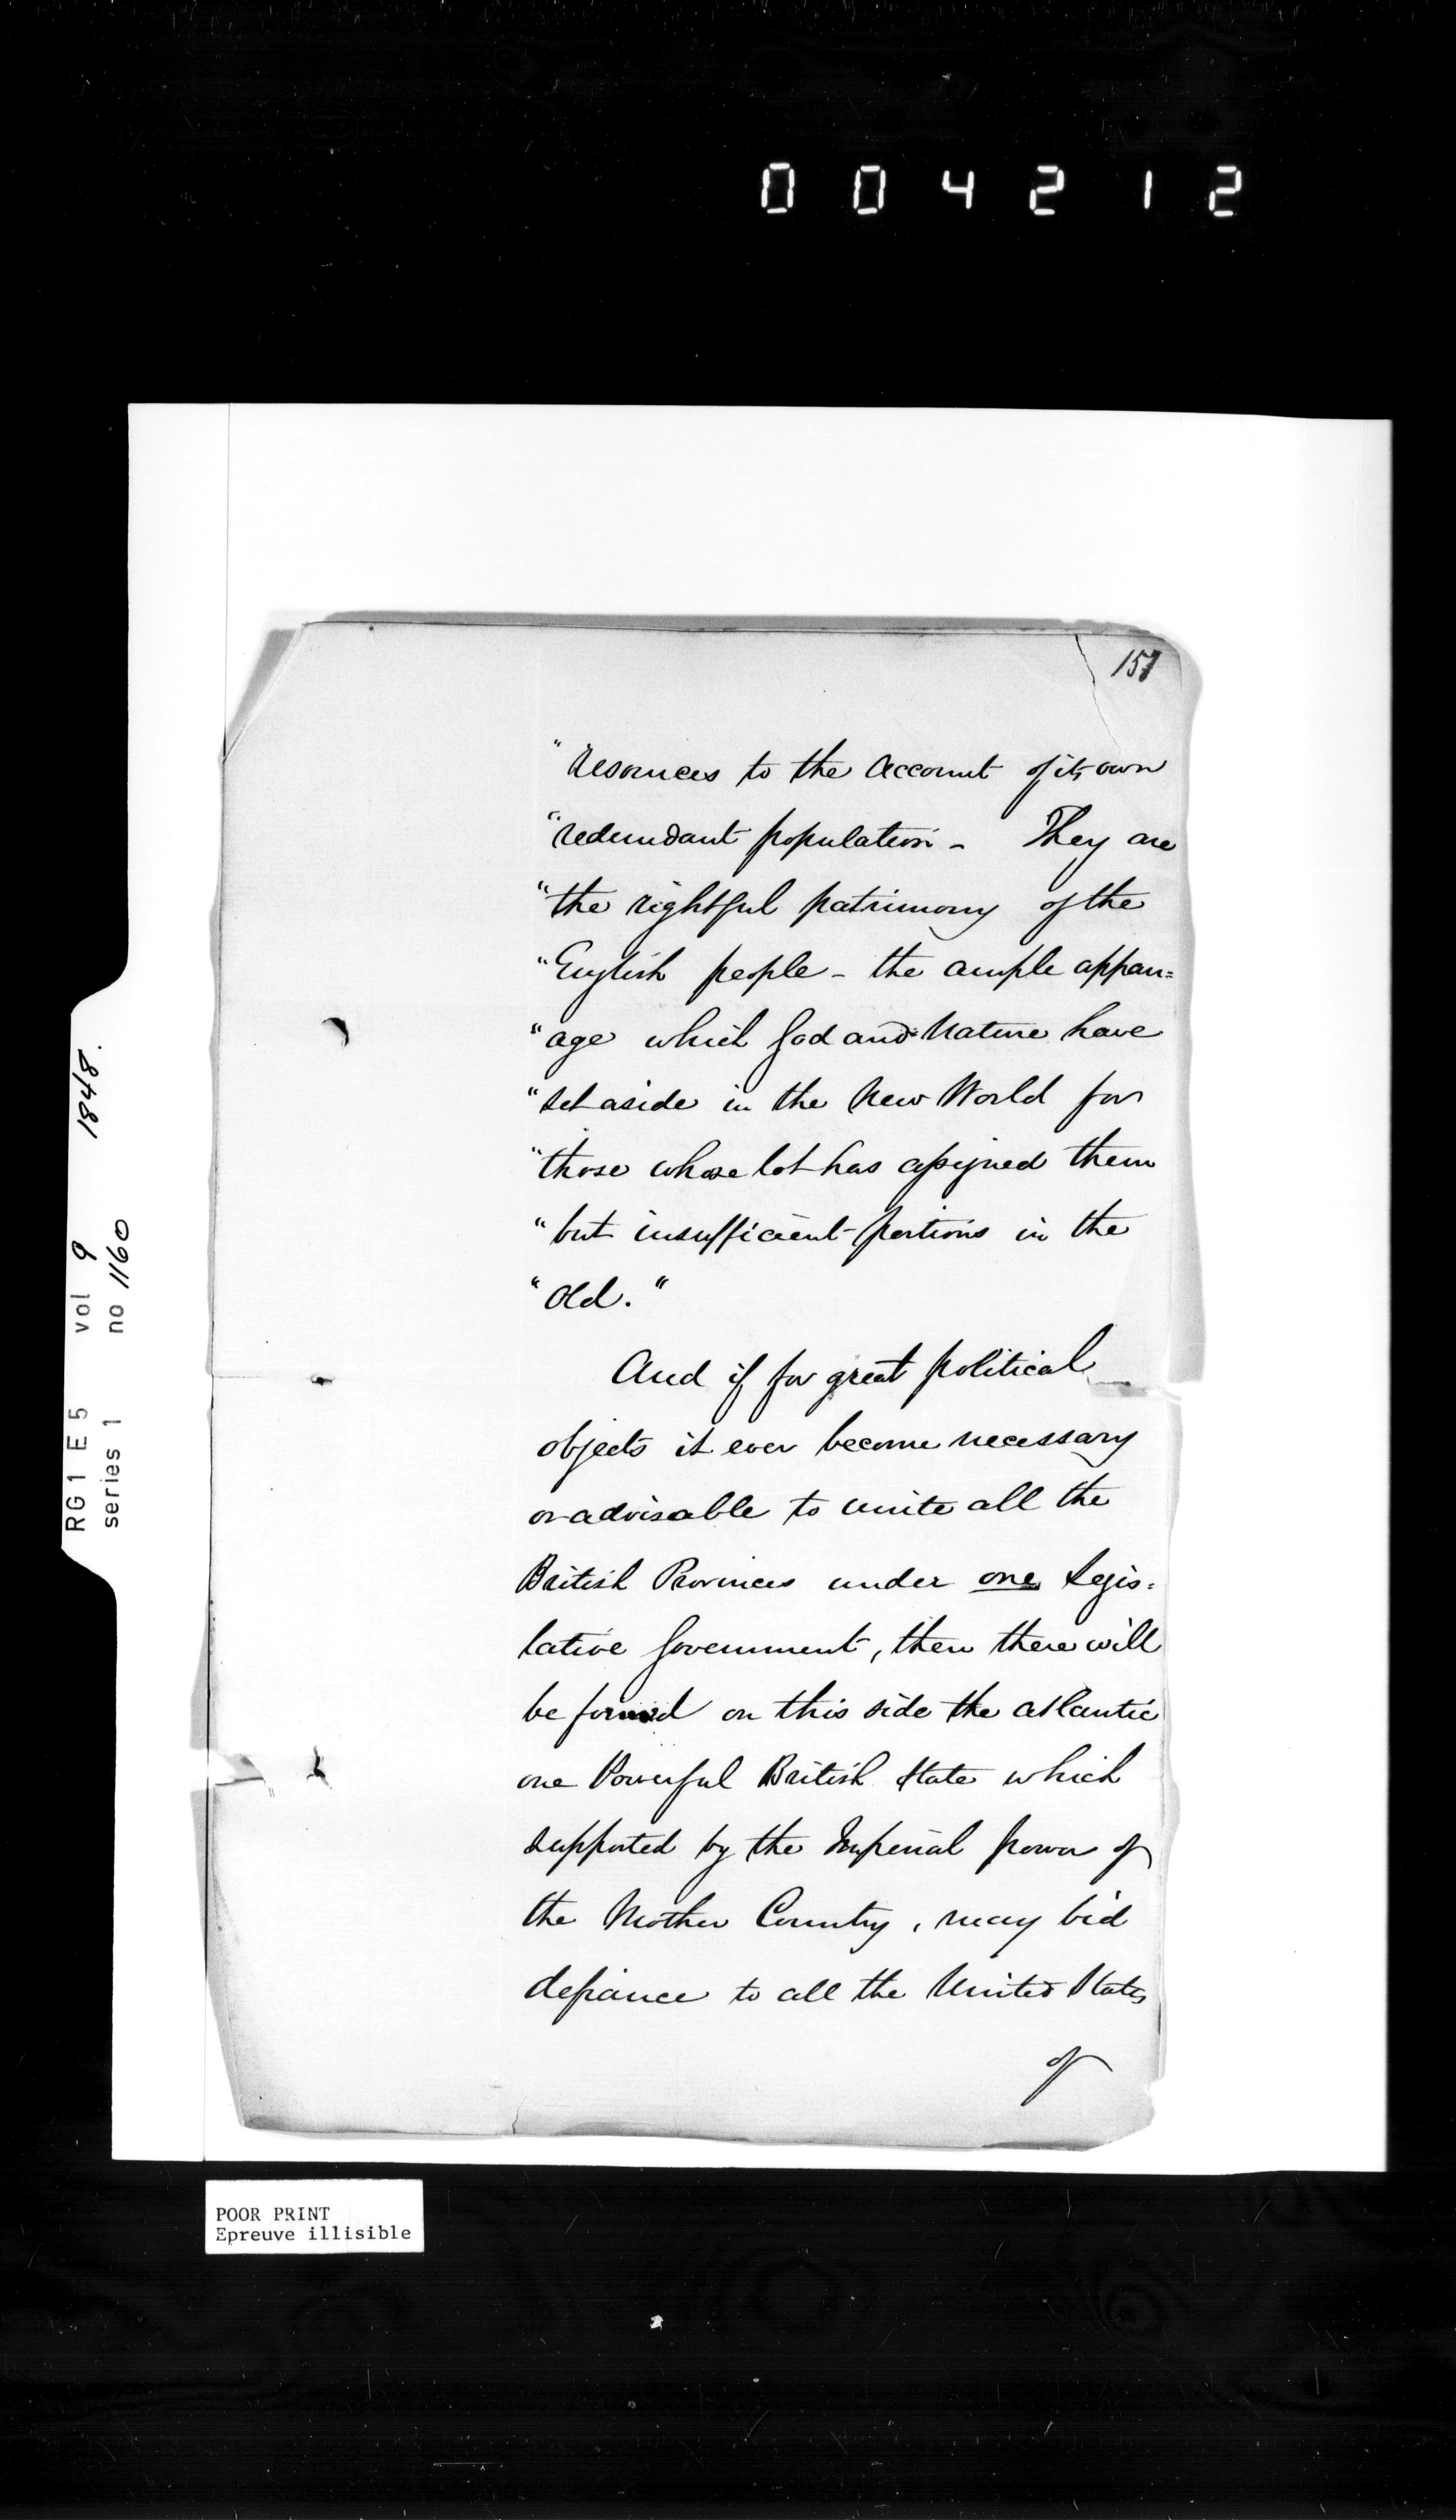 004212
157
"Resources to the Account of its own
"redundant population - They are
"the rightful patrimony of the
"English people - the ample appan=
"age which God and Nature have
"set aside in the New World for
"those whose lot has assigned them
"but insufficient portions in the
"Old."
And if for great political
objects it ever become necessary
or advisable to unite all the
British Provinces under one Legis=
lative Government, then there will
be formed on this side the Atlantic
one Powerful British State which
supported by the Imperial power of
the Mother Country, may bid
defiance to all the United States
of
RG 1 E 5 vol 9 1848.
series 1 no 1160
POOR PRINT
Epreuve illisible